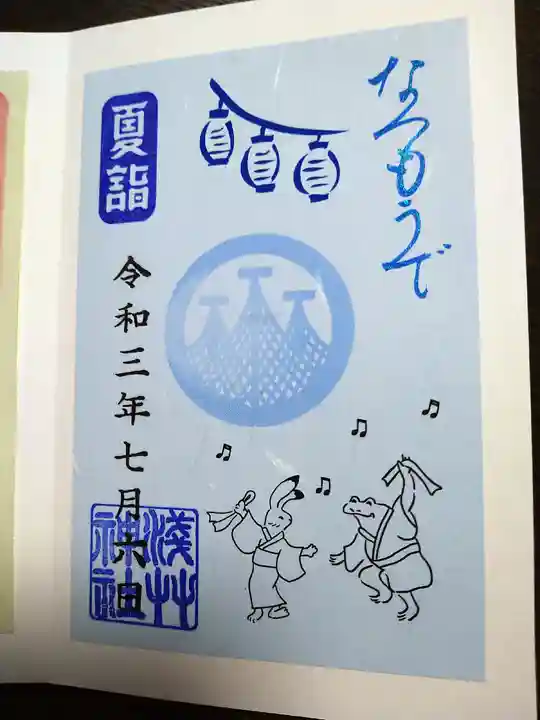 なつもうで
夏詣
令和三年七月六日
浅草
神社